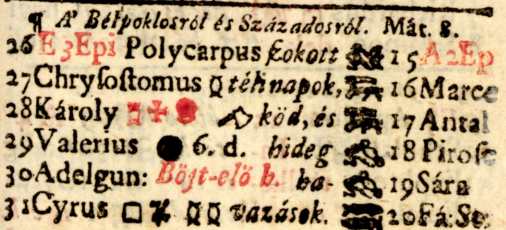 ¶ A' Béłpoklosról és Századosról. Mát. 8.
26 E 3 Epi Polycarpus szokott 15 A 2 Ep
27 Chryſoſtomus téli napok, 16 Marce
28 Károly köd, és 17 Antal
29 Valerius 6. d. hideg 18 Piroſc
30 Adelgun: Böjt-elö h. ha- 19 Sára
31 Cyrus vazások. 20 Fá: Se: